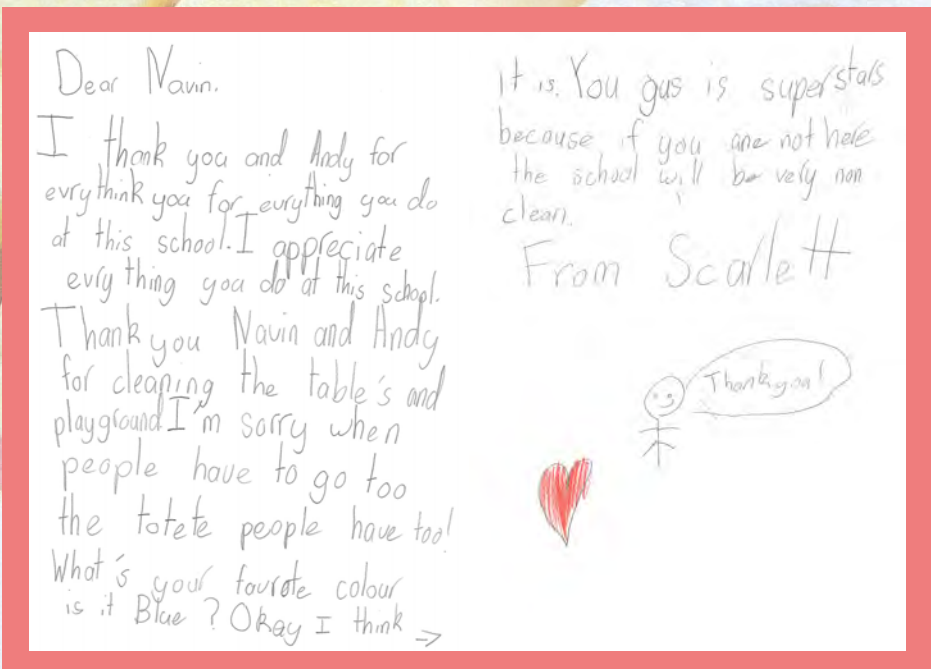 Dear Navin.
I thank you and Andy for
evrythink you for evrything you do
at this school. I appreciate
evry thing you do at this school.
Thank you Navin and Andy
for cleaning the table's and
playground I'm sorry when
people have to go too
the totete people have too!
What's your favrote colour
is it Blue? Okay I think →
It is. You gus is superstars
because if you are not here
the school will be very non
clean.
From Scarlett
Thank you!